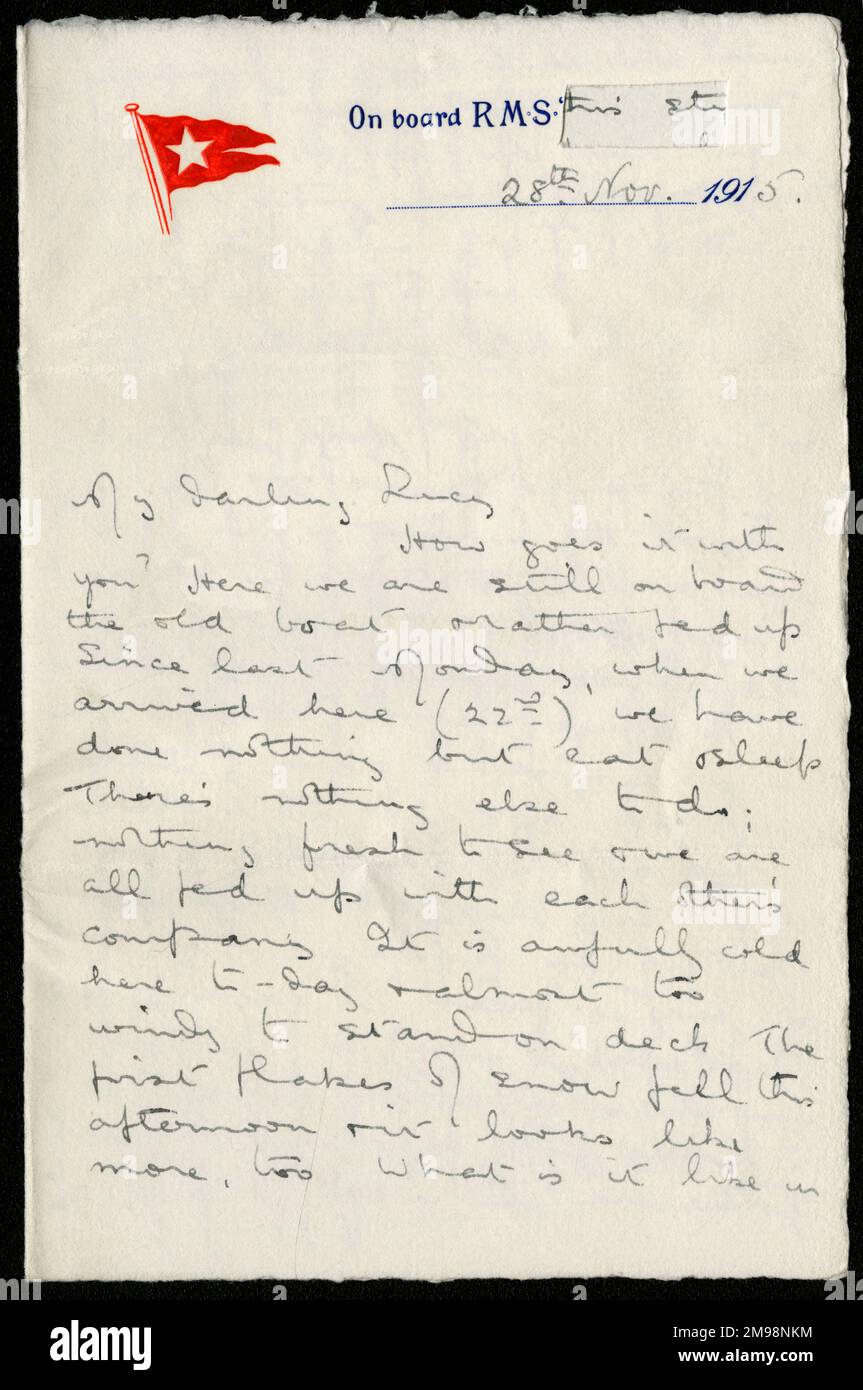 On board R.M.S. "this stu
28th Nov. 1915.
My darling Lucy
How goes it with
you? Here we are still on board
the old boat & rather fed up
Since last Monday, when we
arrived here (22nd) we have
done nothing but eat & sleep
There's nothing else to do;
nothing fresh to see & we are
all fed up with each other's
company It is awfully cold
here to-day & almost too
windy to stand on deck The
first flakes of snow fell this
afternoon & it looks like
more, too What is it like in
alamy
Image ID: 2M98NKM
www.alamy.com